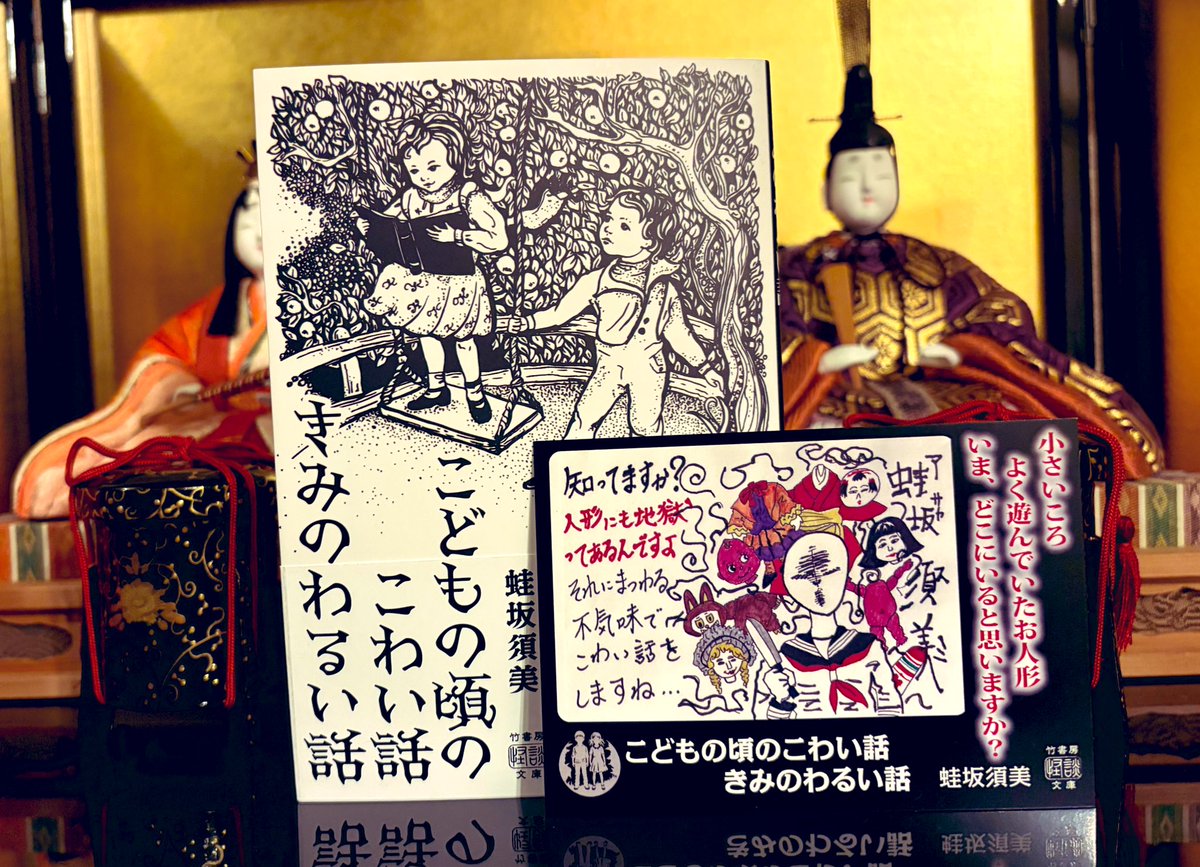 こどもの頃の
こわい話
きみのわるい話
蛙坂須美
竹書房
怪談
文庫
知ってますか?
人形にも地獄
ってあるんですよ
それにまつわる
不気味で
こわい話を
しますね…
アサカ
蛙坂
須美
小さいころ
よく遊んでいたお人形
いま、どこにいると思いますか?
こどもの頃のこわい話
きみのわるい話
蛙坂須美
竹書房
怪談
文庫